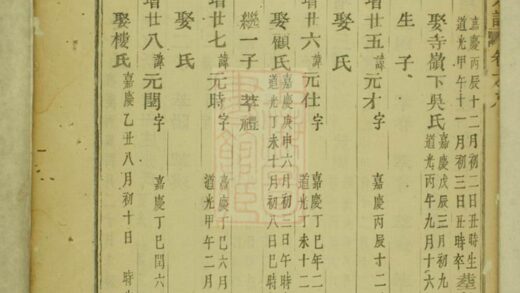 譜 卷之九
嘉慶丙辰十二月初二日丑時生
道光甲午十一月初三日丑時卒
娶寺嶺下吳氏 嘉慶戊辰三月初九
道光丙午九月十六
生子
增廿五諱元才字 嘉慶丙辰十二
娶 氏
增廿六諱元仕字 嘉慶丁巳年二
道光丁未十二
娶顧氏 嘉慶庚申六月初三日午時
道光丁未十月初八日巳時
繼一子 萃禮
增廿七諱元時字 嘉慶丁巳六月
道光甲午二月
娶 氏
增廿八諱元閏字 嘉慶丁巳閏六
娶樓氏 嘉慶乙丑八月初十日 時